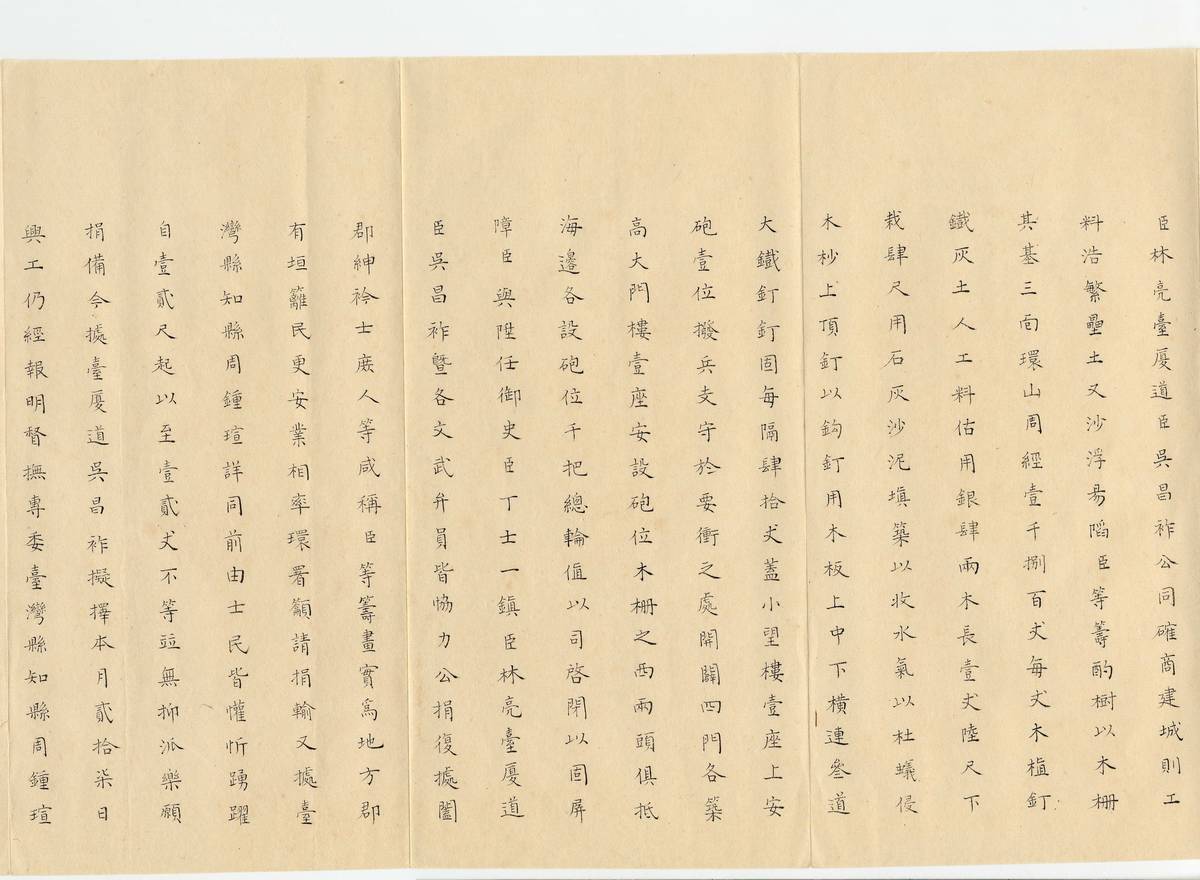 臣林亮臺廈道臣吳昌祚公同確商建城則工
料浩繁壘土又沙浮易陷臣等籌酌樹以木柵
其基三面環山周經壹千捌百丈每丈木植釘
鐵灰土人工料估用銀肆兩木長壹丈陸尺下
栽肆尺用石灰沙泥填築以收水氣以杜蟻侵
木杪上頂釘以鈎釘用木板上中下橫連叄道
大鐵釘釘固每隔肆拾丈蓋小望樓壹座上安
砲壹位撥兵支守於要衝之處開闢四門各築
高大門樓壹座安設砲位木柵之西兩頭俱抵
海邊各設砲位千把總輪值以司啓閉以固屏
障臣與陞任御史臣丁士一鎮臣林亮臺廈道
臣吳昌祚暨各文武弁員皆恊力公捐復據闔
郡紳衿士庶人等咸稱臣等籌畫實爲地方郡
有垣籬民更安業相率環署籲請捐輸又據臺
灣縣知縣周鍾瑄詳同前由士民皆懽忻踴躍
自壹貳尺起以至壹貳丈不等並無抑派樂願
捐備今據臺廈道吳昌祚擬擇本月貳拾柒日
興工仍經報明督撫專委臺灣縣知縣周鍾瑄